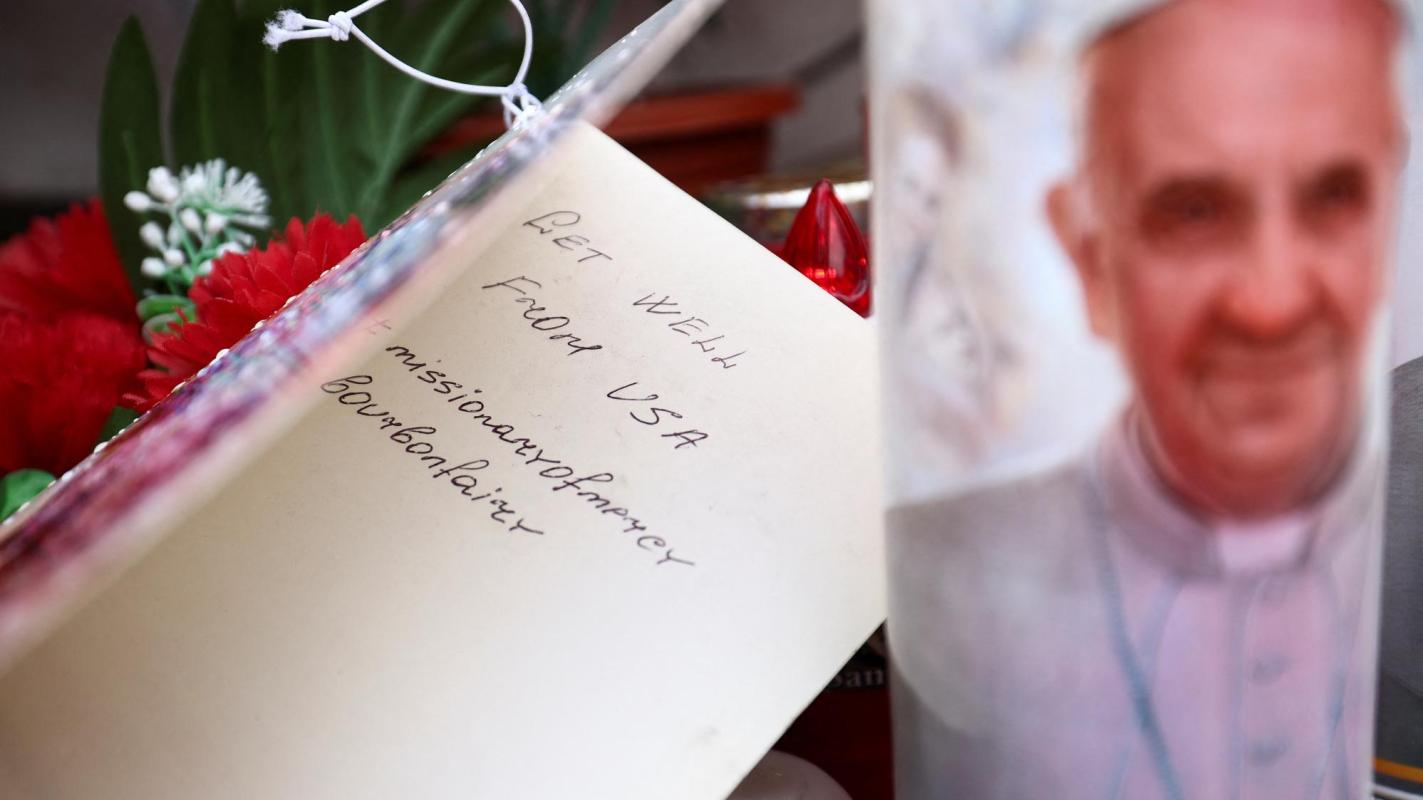 GET WELL
From USA
missionaryofmercy
bourbonfairy
san